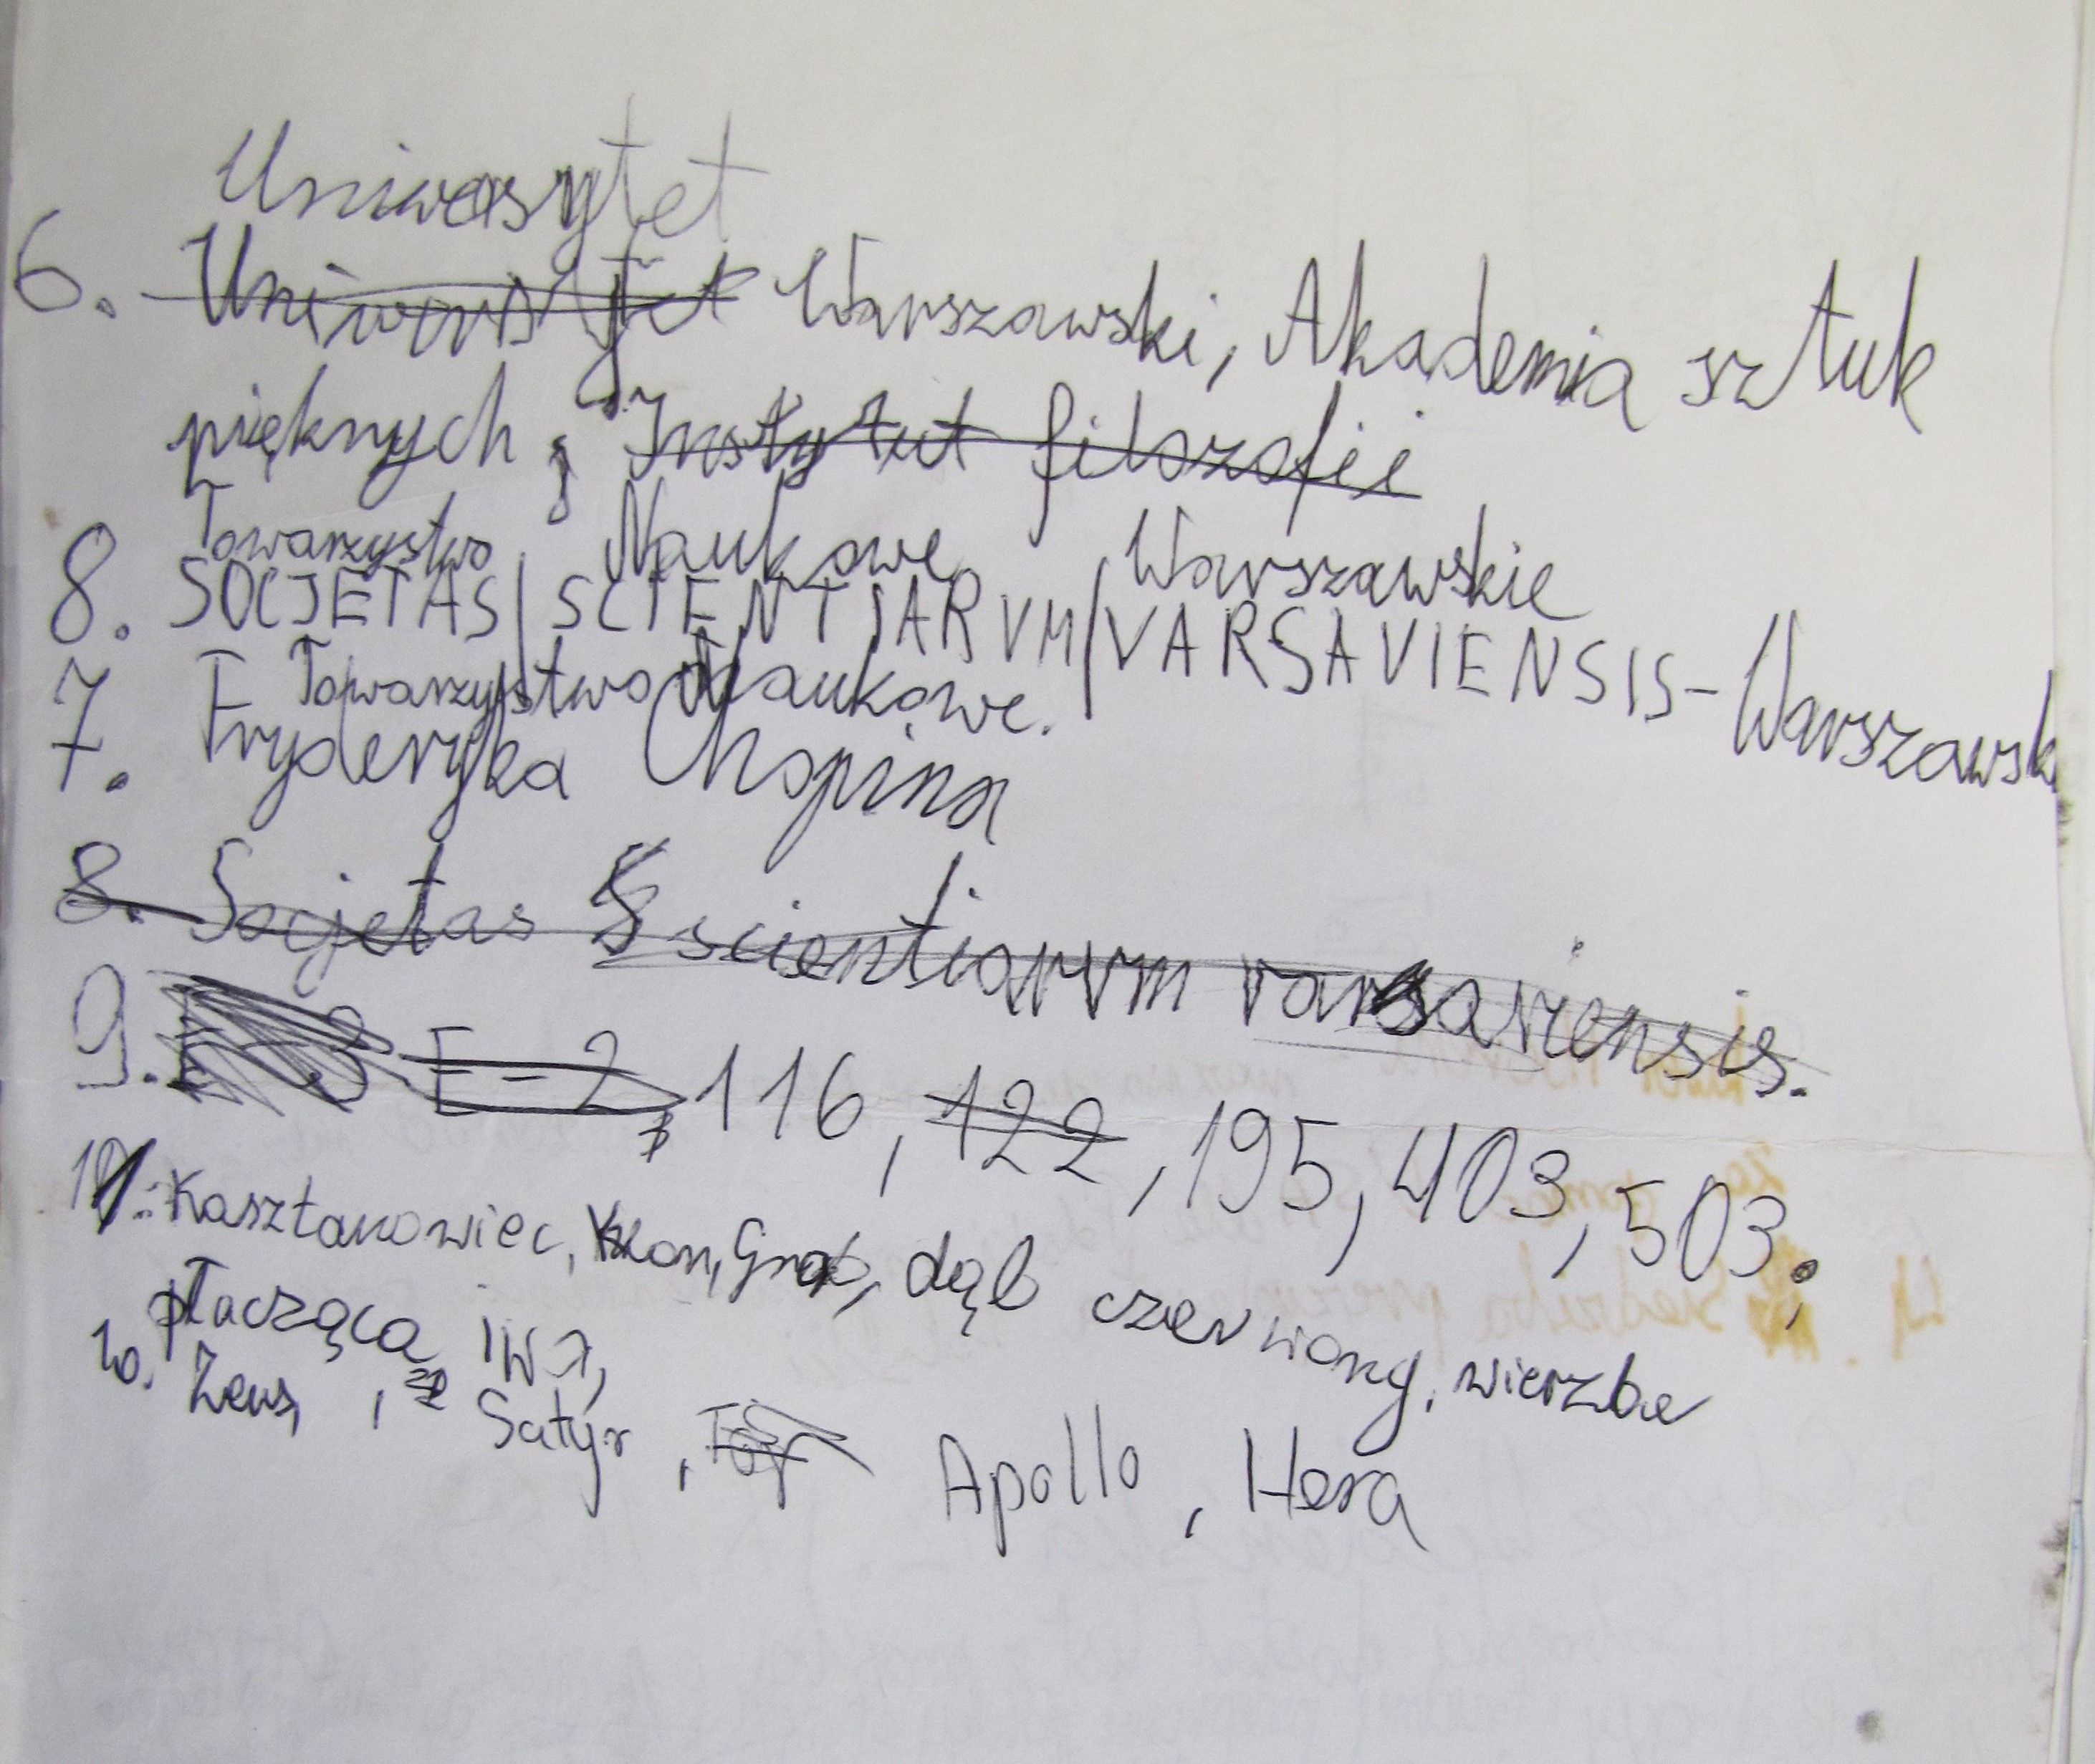 Uniwersytet
6. Uniwersytet Warszawski, Akademia sztuk
pięknych, Instytut filozofii
Towarzystwo Naukowe Warszawskie
8. SOCJETAS/SCIENTJARVM/VARSAVIENSIS-Warszawsk
Towarzystwo Naukowe.
7. Fryderyka Chopina
8. Socjetas Scientiarvm varsaviensis.
9. E-3 E-2, 116, 122, 195, 403, 503;
11. Kasztanowiec, Klon, Grab, dąb czerwony, wierzba
płacząca, iwa,
10. Zeus, Satyr, Apollo, Hera